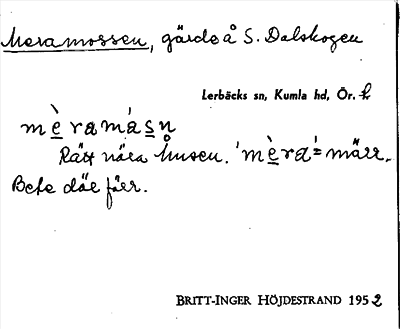 Meramossen, gärde å S. Dalskogen
Lerbäcks sn, Kumla hd, Ör. l.
mè̱ramás̱n
Rätt nära husen. 'mè̱ra' = märr.
Bete där förr.
BRITT-INGER HÖJDESTRAND 1952